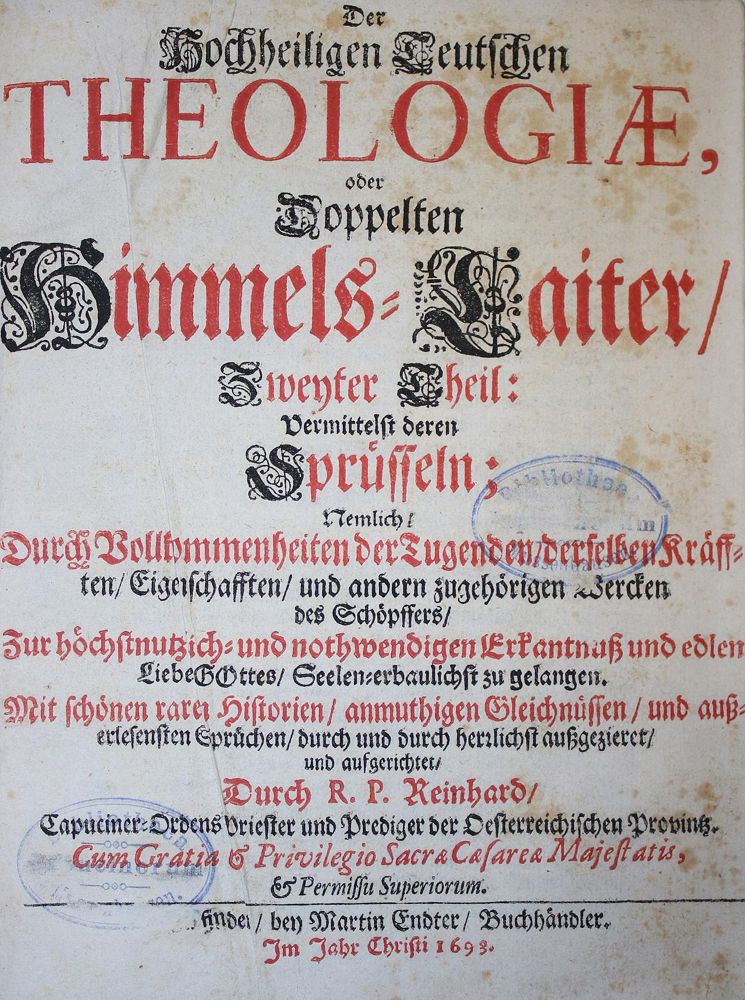 Der
Hochheiligen Teutschen
THEOLOGIÆ,
oder
Doppelten
Himmels-Laiter/
Zweyter Theil:
Vermittelst deren
Sprüsseln;
Nemlich/
Durch Vollkommenheiten der Tugenden/derselben Kräff-
ten/ Eigenschafften/ und andern zugehörigen Wercken
des Schöpffers/
Zur höchstnutzich- und nothwendigen Erkantnuß und edlen
Liebe GOttes/ Seelen-erbaulichst zu gelangen.
Mit schönen raren Historien/ anmuthigen Gleichnüssen/ und auß-
erlesensten Sprüchen/ durch und durch herrlichst außgezieret/
und aufgerichtet/
Durch R. P. Reinhard/
Capuciner-Ordens Priester und Prediger der Oesterreichischen Provintz.
Cum Gratia & Privilegio Sacræ Cæsareæ Majestatis,
& Permissu Superiorum.
finder/ bey Martin Endter/ Buchhändler.
Im Jahr Christi 1693.
Bibliothec